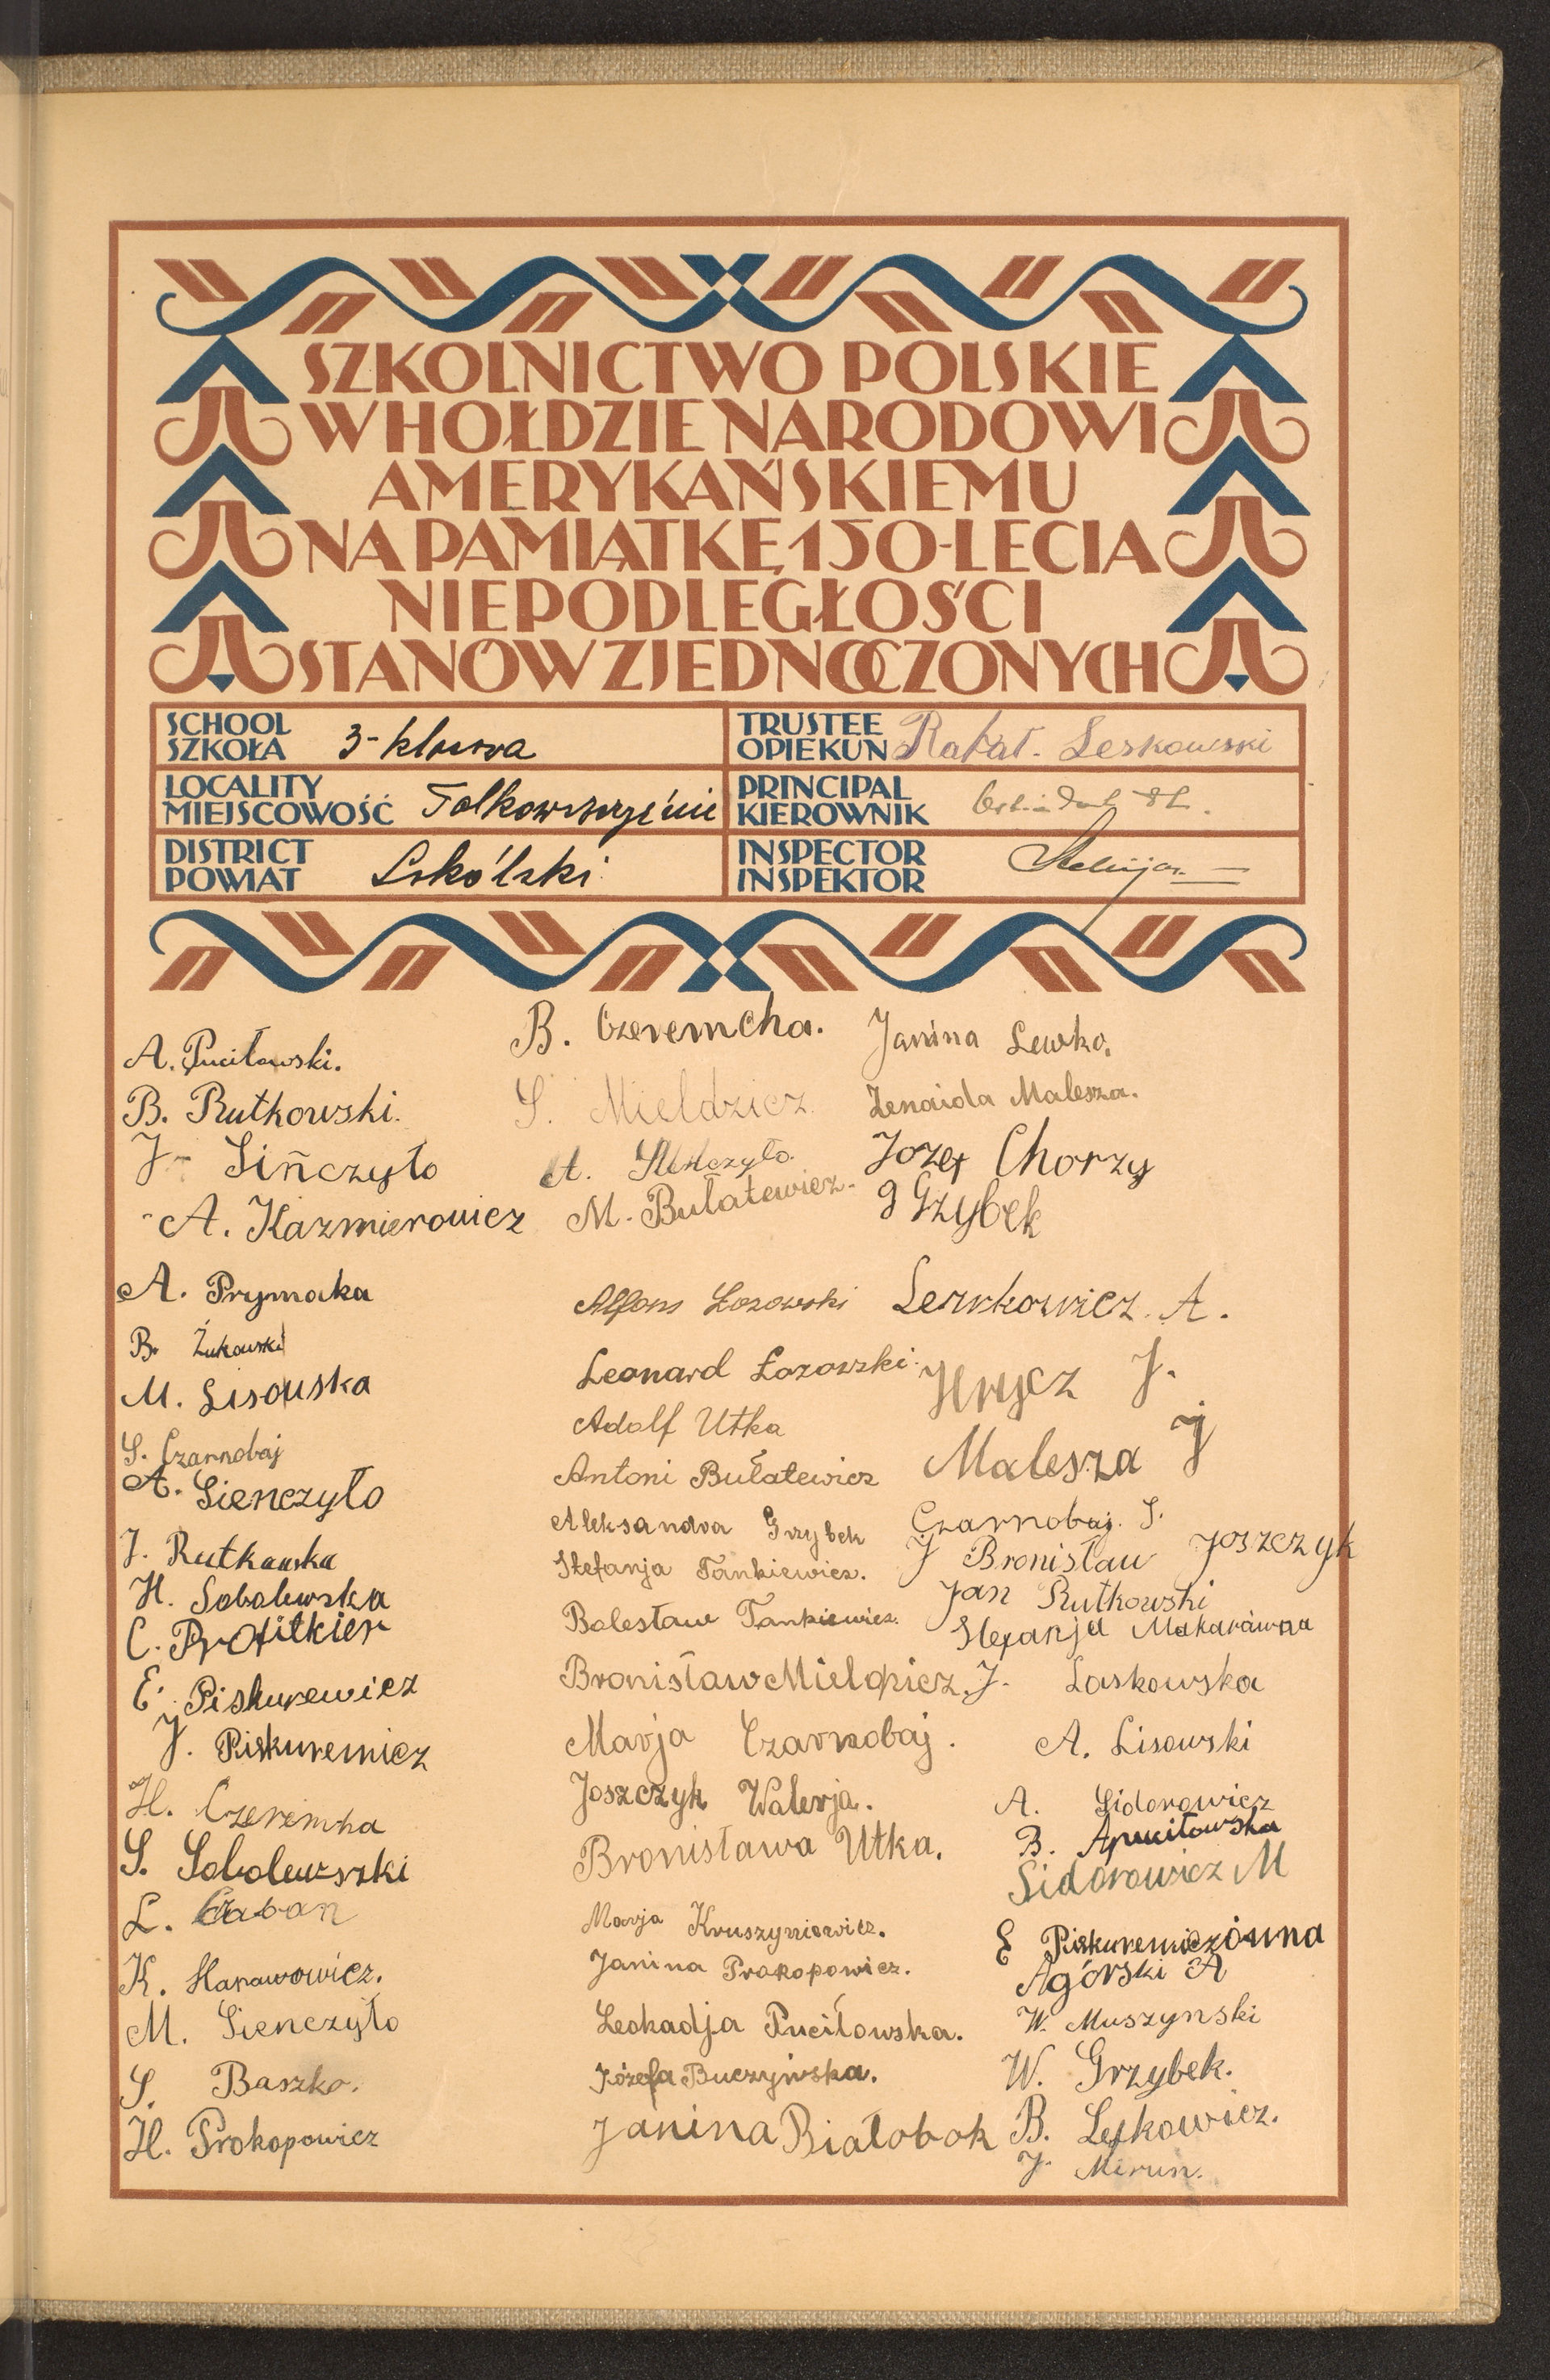 SZKOLNICTWO POLSKIE
W HOŁDZIE NARODOWI
AMERYKAŃSKIEMU
NA PAMIĄTKĘ 150-LECIA
NIEPODLEGŁOŚCI
STANÓW ZJEDNOCZONYCH
SCHOOL
SZKOŁA 3-klasowa
TRUSTEE
OPIEKUN Rafał Leskowski
LOCALITY
MIEJSCOWOŚĆ
PRINCIPAL
KIEROWNIK
DISTRICT
POWIAT Sokólski
INSPECTOR
INSPEKTOR
A. Puciłowski.
B. Rutkowski.
J. Sińczyło
A. Kazmierowicz
A. Prymaka
B. Żukowski
M. Lisouska
S. Czarnobaj
A. Sienczyło
J. Rutkauska
H. Sobolewska
C.
E. Piskurewicz
J. Piskurewicz
H. Czeremha
S. Sobolewszki
L. Czaban
K. Harawowicz.
M. Sienczyło
S. Baszko.
H. Prokopowicz
B. Czeremcha.
S. Mieldzicz.
A.
M. Bułatewicz.
Alfons Łozowski
Leonard Łozowski.
Adolf Utka
Antoni Bułatewicz
Aleksandra Grzybek
Stefanja Tankiewicz.
Bolesław Tankiewicz.
Bronisław Mieldzicz.
Marja Czarnobaj.
Joszczyk Walerja.
Bronisława Utka.
Marja Kruszyniewicz.
Janina Prokopowicz.
Leokadja Puciłowska.
Józefa Buczyńska.
Janina Białobok
Janina Lewko.
Zenaida Malesza.
Jozef Chorzy
J Grzybek
Lewkowicz. A.
Hrycz J.
Malesza J
Czarnobaj. S.
J Bronisław Joszczyk
Jan Rutkowski
Stefanja Makaráwna
J. Laskowska
A. Lisowski
A. Sidorowicz
B. Apuciłowska
Sidorowicz M
E Piskurewiczówna
Agórski A
W. Muszynski
W. Grzybek.
B. Lefkowicz.
J. Mirun.